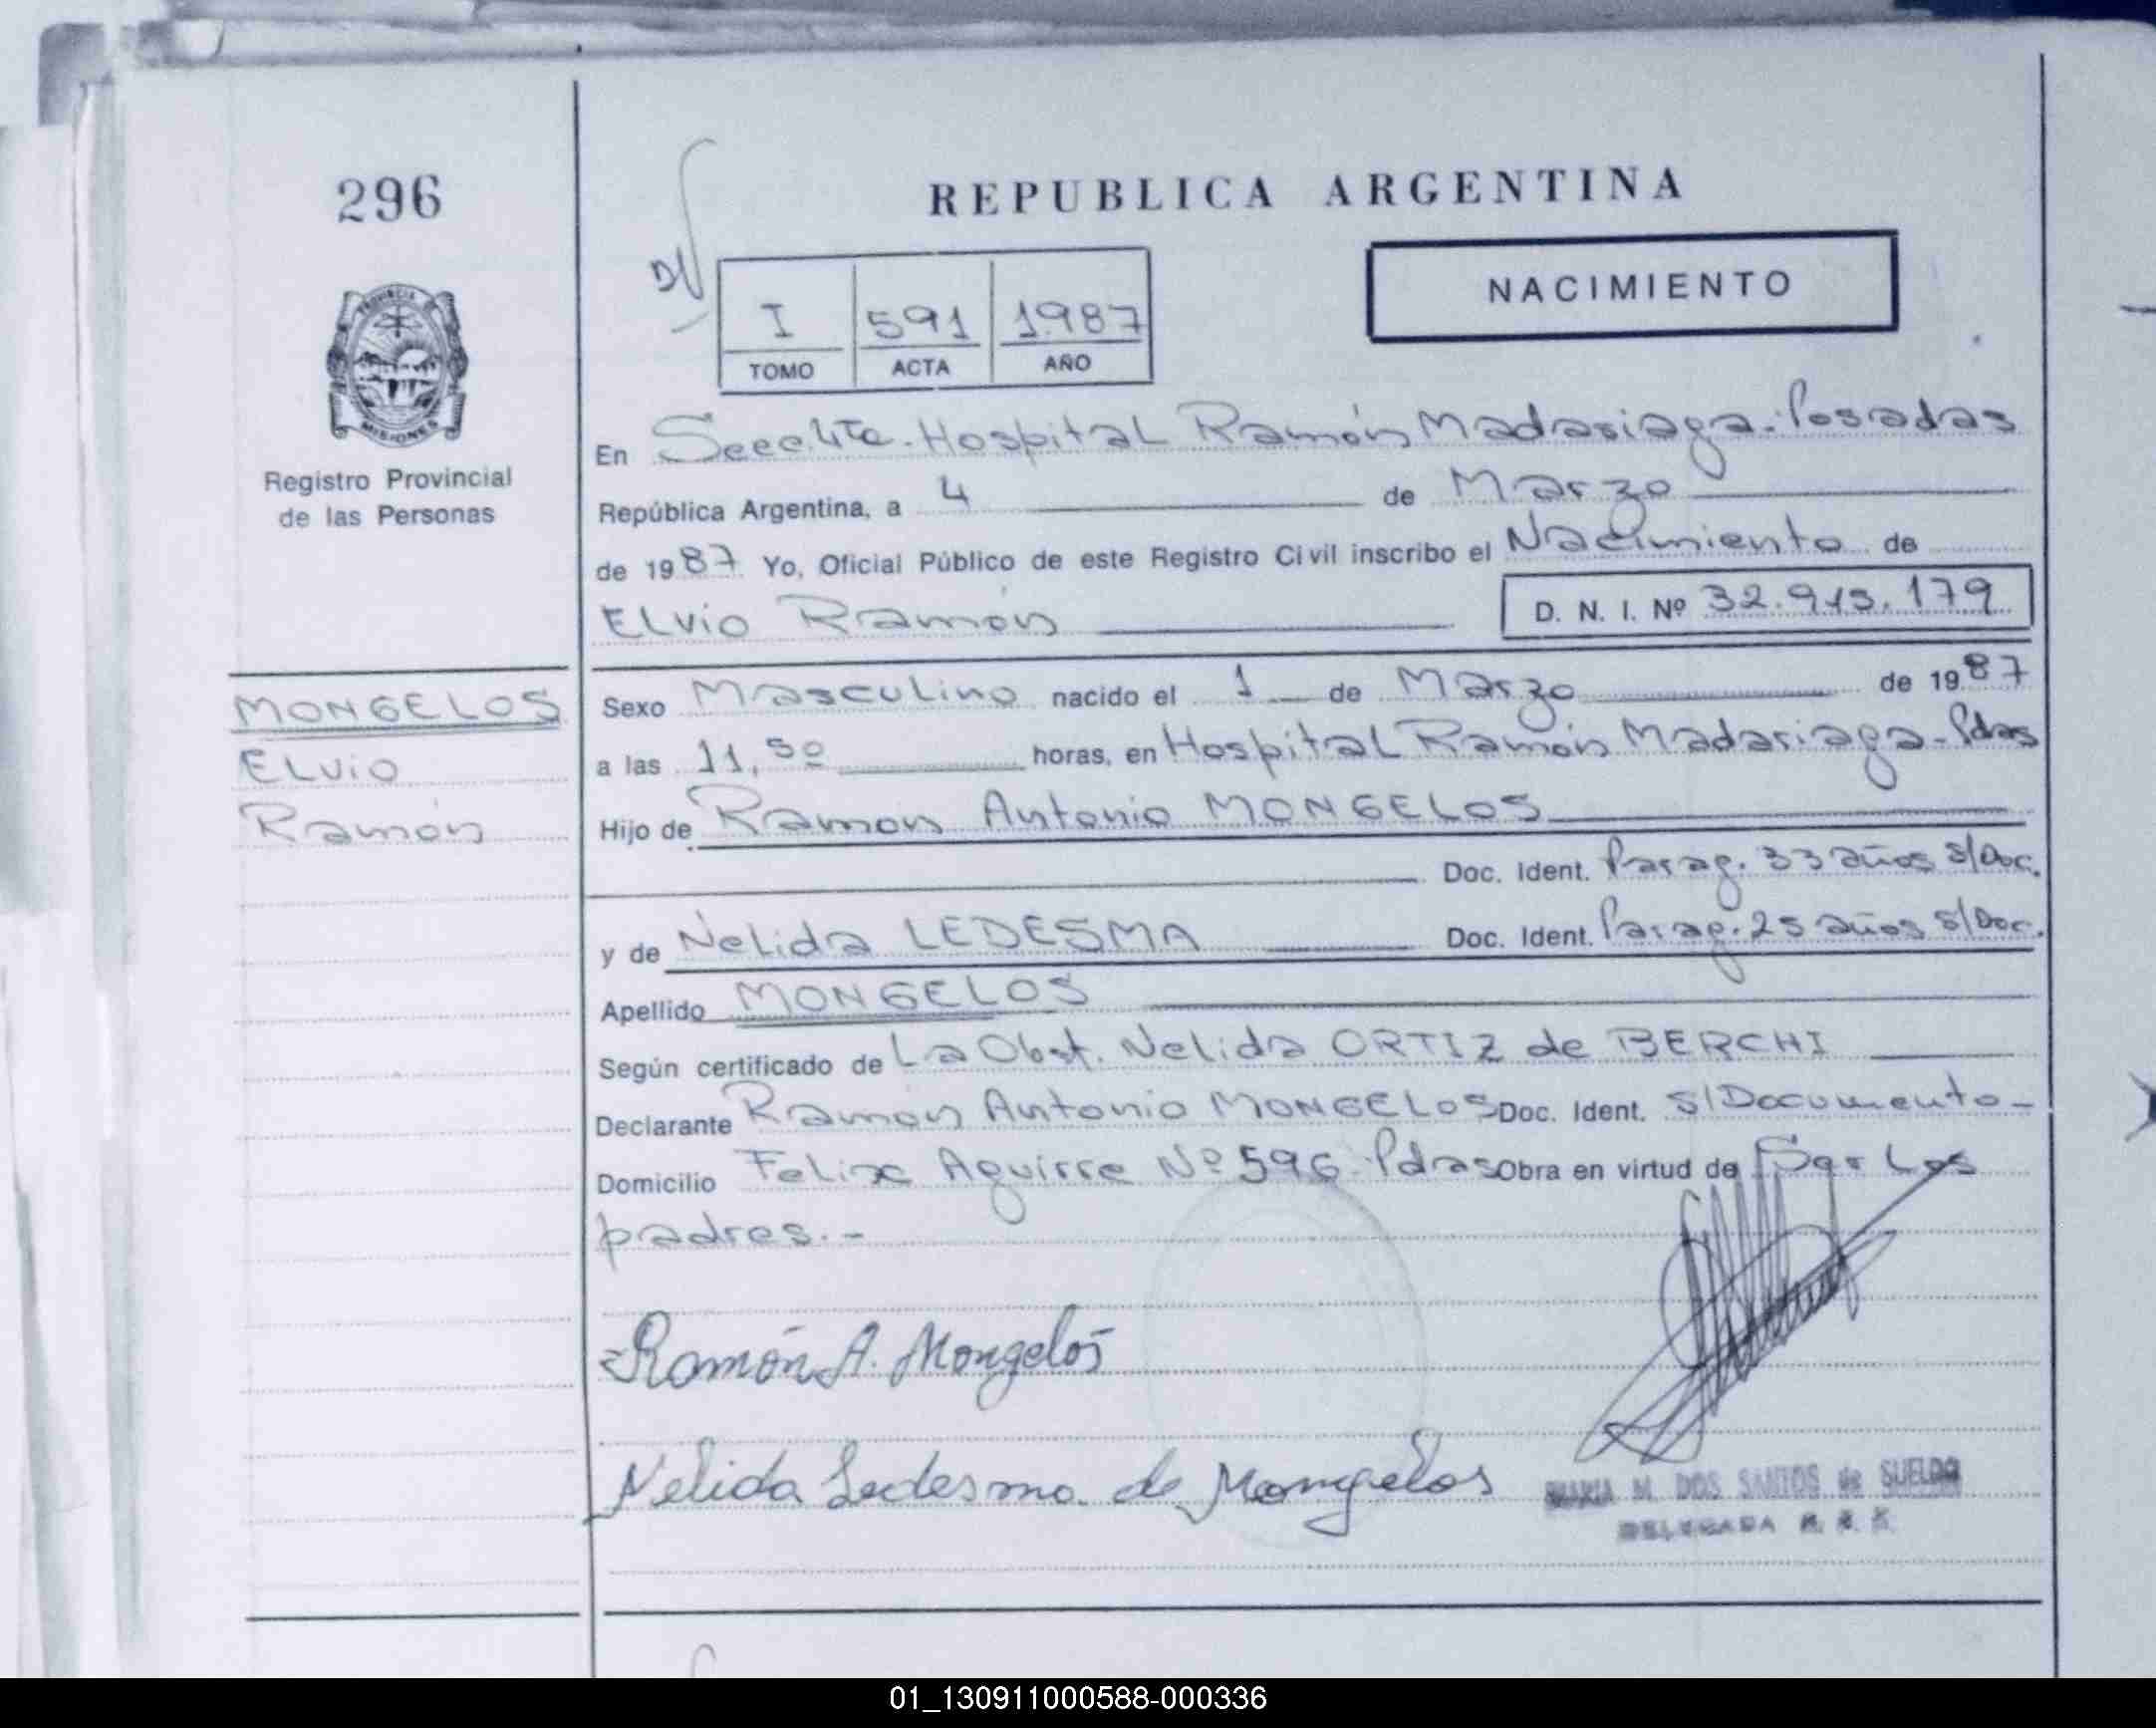 296
REPUBLICA ARGENTINA
NACIMIENTO
I 591 1987
TOMO ACTA AÑO
PROVINCIA DE
MISIONES
Registro Provincial
de las Personas
En Secc. Hospital Ramón Madariaga - Posadas
República Argentina, a 4 de Marzo
de 1987 Yo, Oficial Público de este Registro Civil inscribo el Nacimiento de
Elvio Ramón D. N. I. Nº 32.915.179
MONGELOS
Elvio
Ramón
Sexo Masculino nacido el 1 de Marzo de 1987
a las 11,50 horas, en Hospital Ramón Madariaga - Pdas
Hijo de Ramon Antonio MONGELOS
Doc. Ident. Parag. 33 años s/Doc.
y de Nelida LEDESMA Doc. Ident. Parag. 25 años s/Doc.
Apellido MONGELOS
Según certificado de La Obst. Nelida ORTIZ de BERCHI
Declarante Ramón Antonio MONGELOS Doc. Ident. S/Documento -
Domicilio Felix Aguirre Nº 596 - Pdas Obra en virtud de Ser Los
padres. -
Ramón A. Mongelós
Nelida Ledesma de Mongelos
MARIA M. DOS SANTOS de SUELDO
DELEGADA
01_130911000588-000336